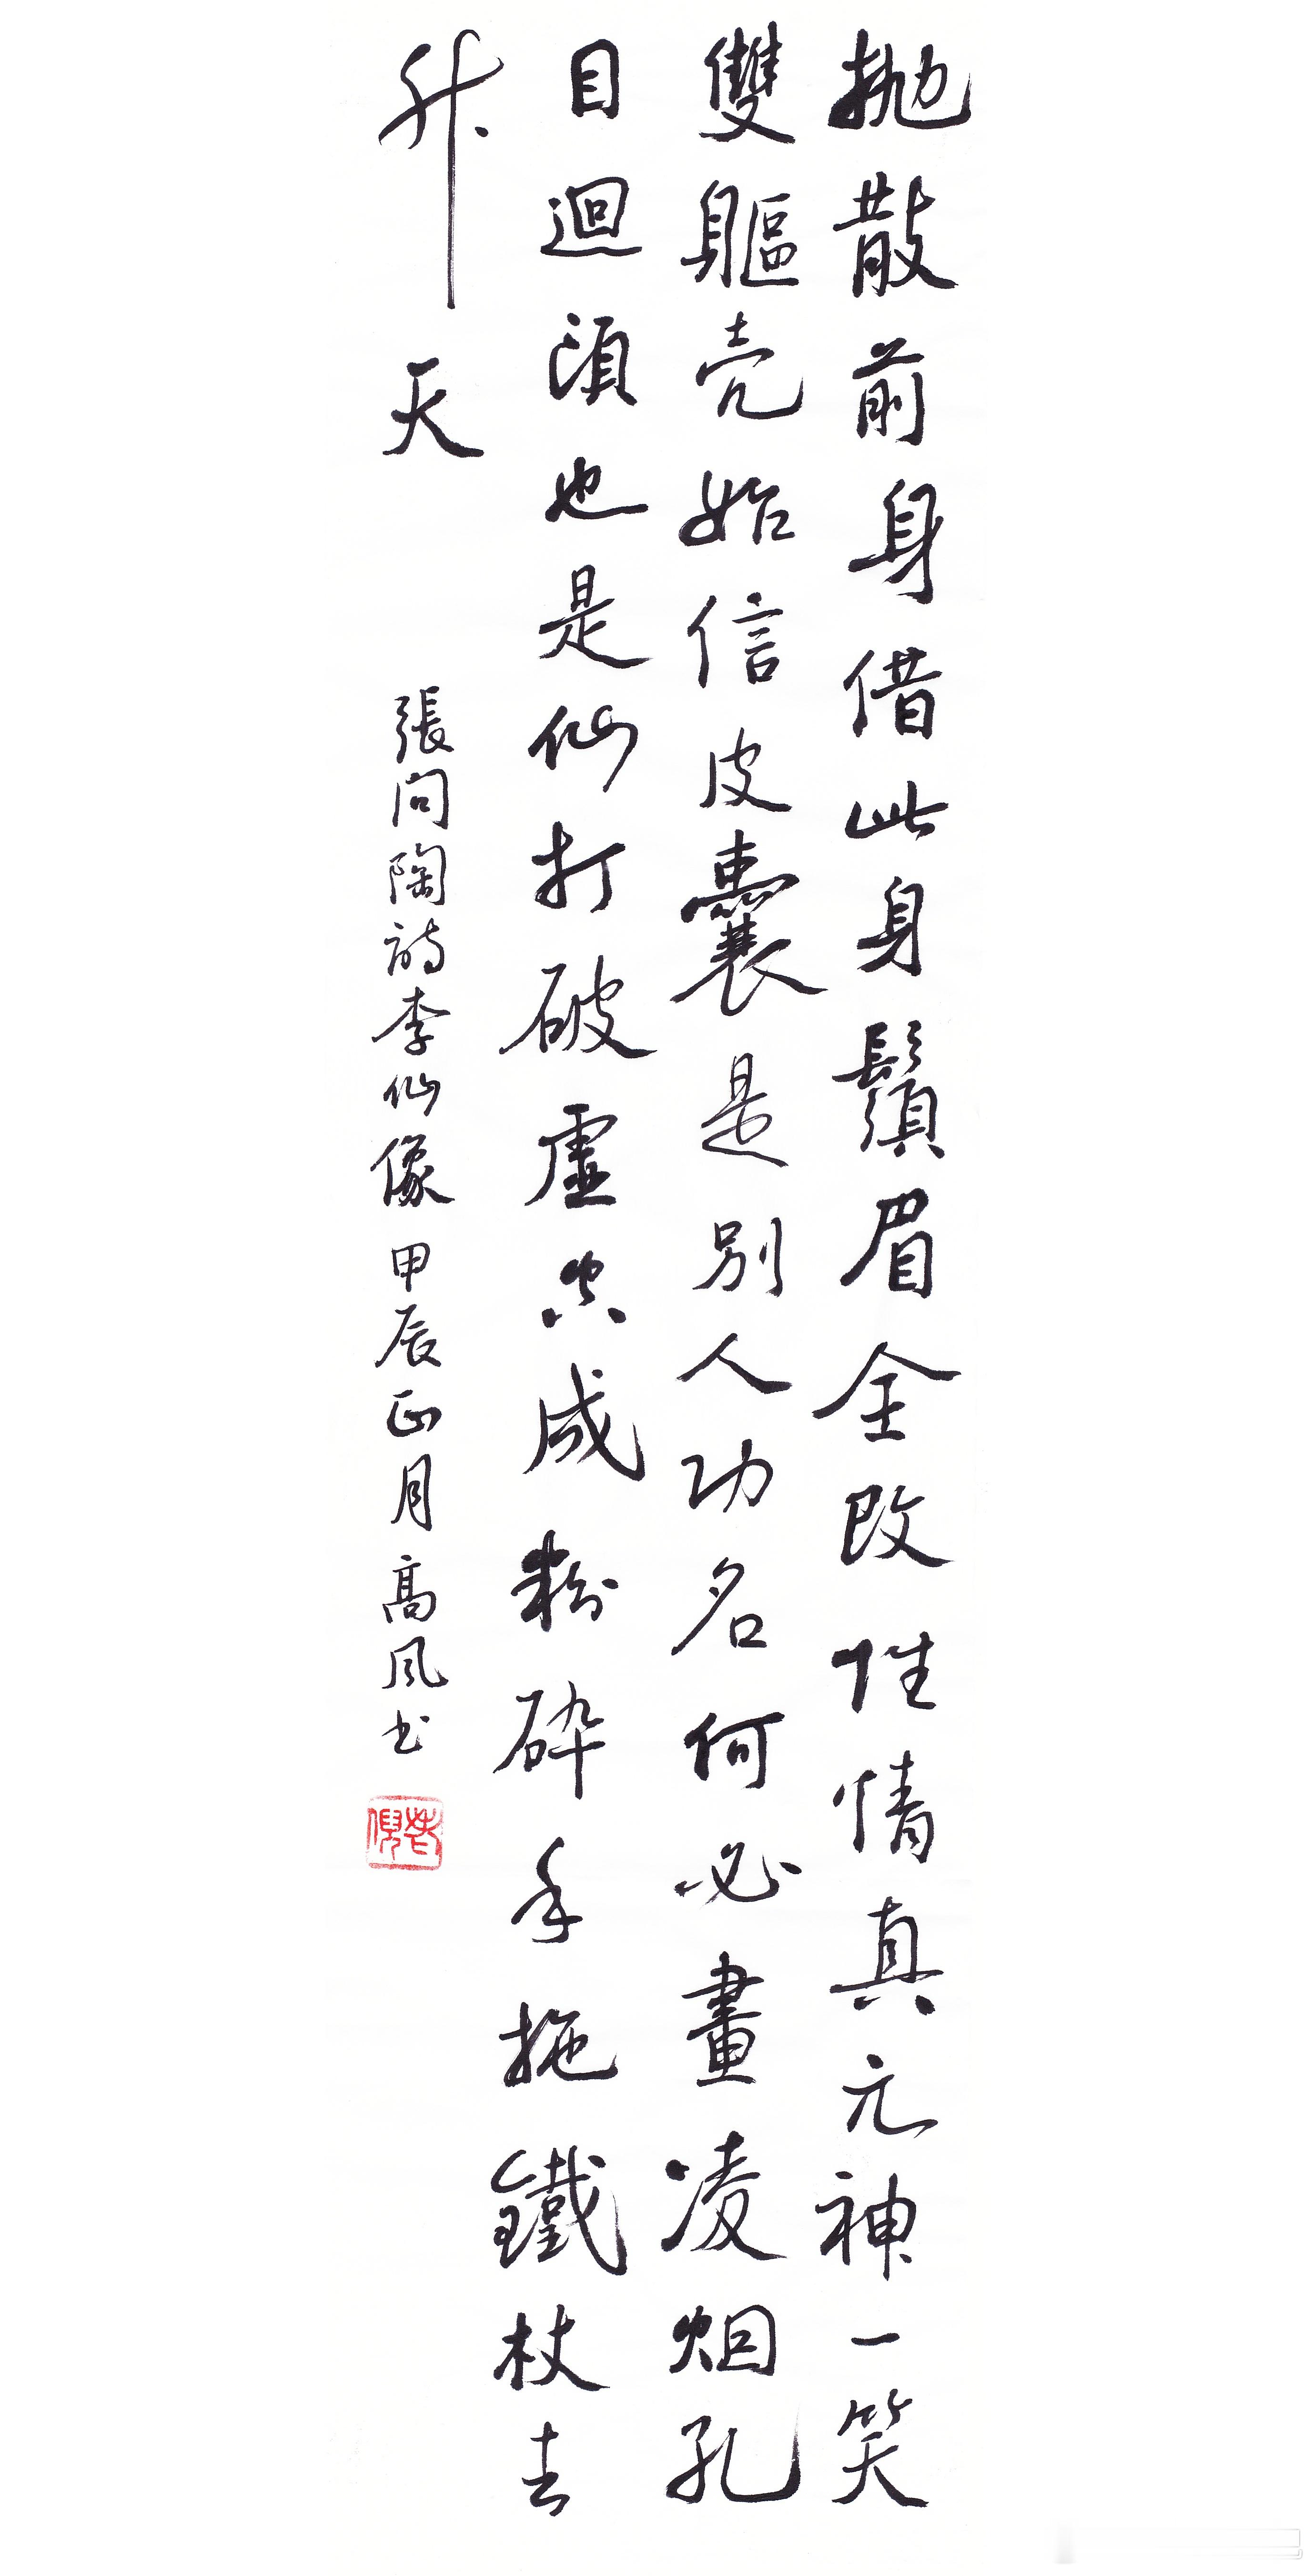 抛散前身借此身鬚眉全改性情真元神一笑
雙軀壳始信皮囊是别人功名何必畫凌烟孔
目迴頭也是仙打破虛空成粉碎手拖鐵杖去
升天
張問陶詩李仙像甲辰正月高风书